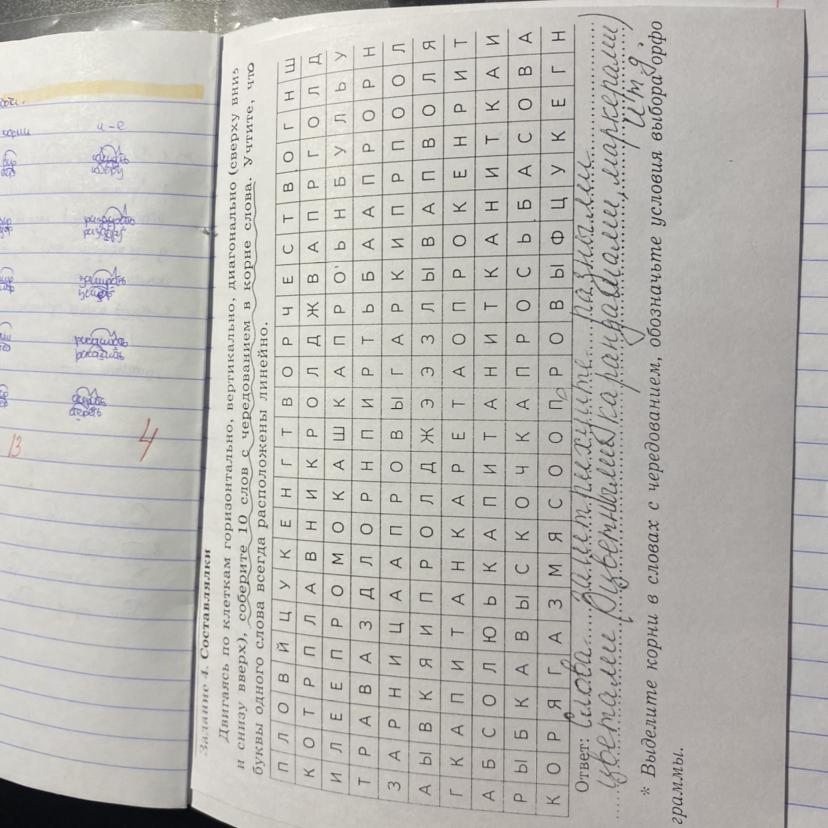 корни
и-е
13
4
Задание 4. Составлялки
Двигаясь по клеткам горизонтально, вертикально, диагонально (сверху вниз
и снизу вверх), соберите 10 слов с чередованием в корне слова. Учтите, что
буквы одного слова всегда расположены линейно.
П Л О В Й Ц У К Е Н Г Т В О Р Ч Е С Т В О Г Н Ш
К О Т Р П Л А В Н И К Р О Л Д Ж В А П Р Г О Л Д
И Л Е Е П Р О М О К А Ш К А П Р О Ь Н Б У Л Ь У
Т Р А В А З Д Л О Р Н П И Р Т Ь Б А А П Р О Р Н
З А Р Н И Ц А А П Р О В Ы Г А Р К И П Р П О О Л
А Ы В К Я И П Р О Л Д Ж Э Э З Л Ы В А П В О Л Я
Г К А П И Т А Н К А Р Е Т А О П Р О К Е Н Р И Т
А Б С О Л Ю Ь К А П И Т А Н И Т К А Н И Т К А И
Р Ы Б К А В Ы С К О Ч К А П Р О С Ь Б А С О В А
К О Р Я Г А З М Я С О О П Р О В Ы Ф Ц У К Е Г Н
Ответ: Слова заштрихуйте разными
цветами (цветными карандашами, маркерами)
и т.д.
* Выделите корни в словах с чередованием, обозначьте условия выбора орфо
граммы.